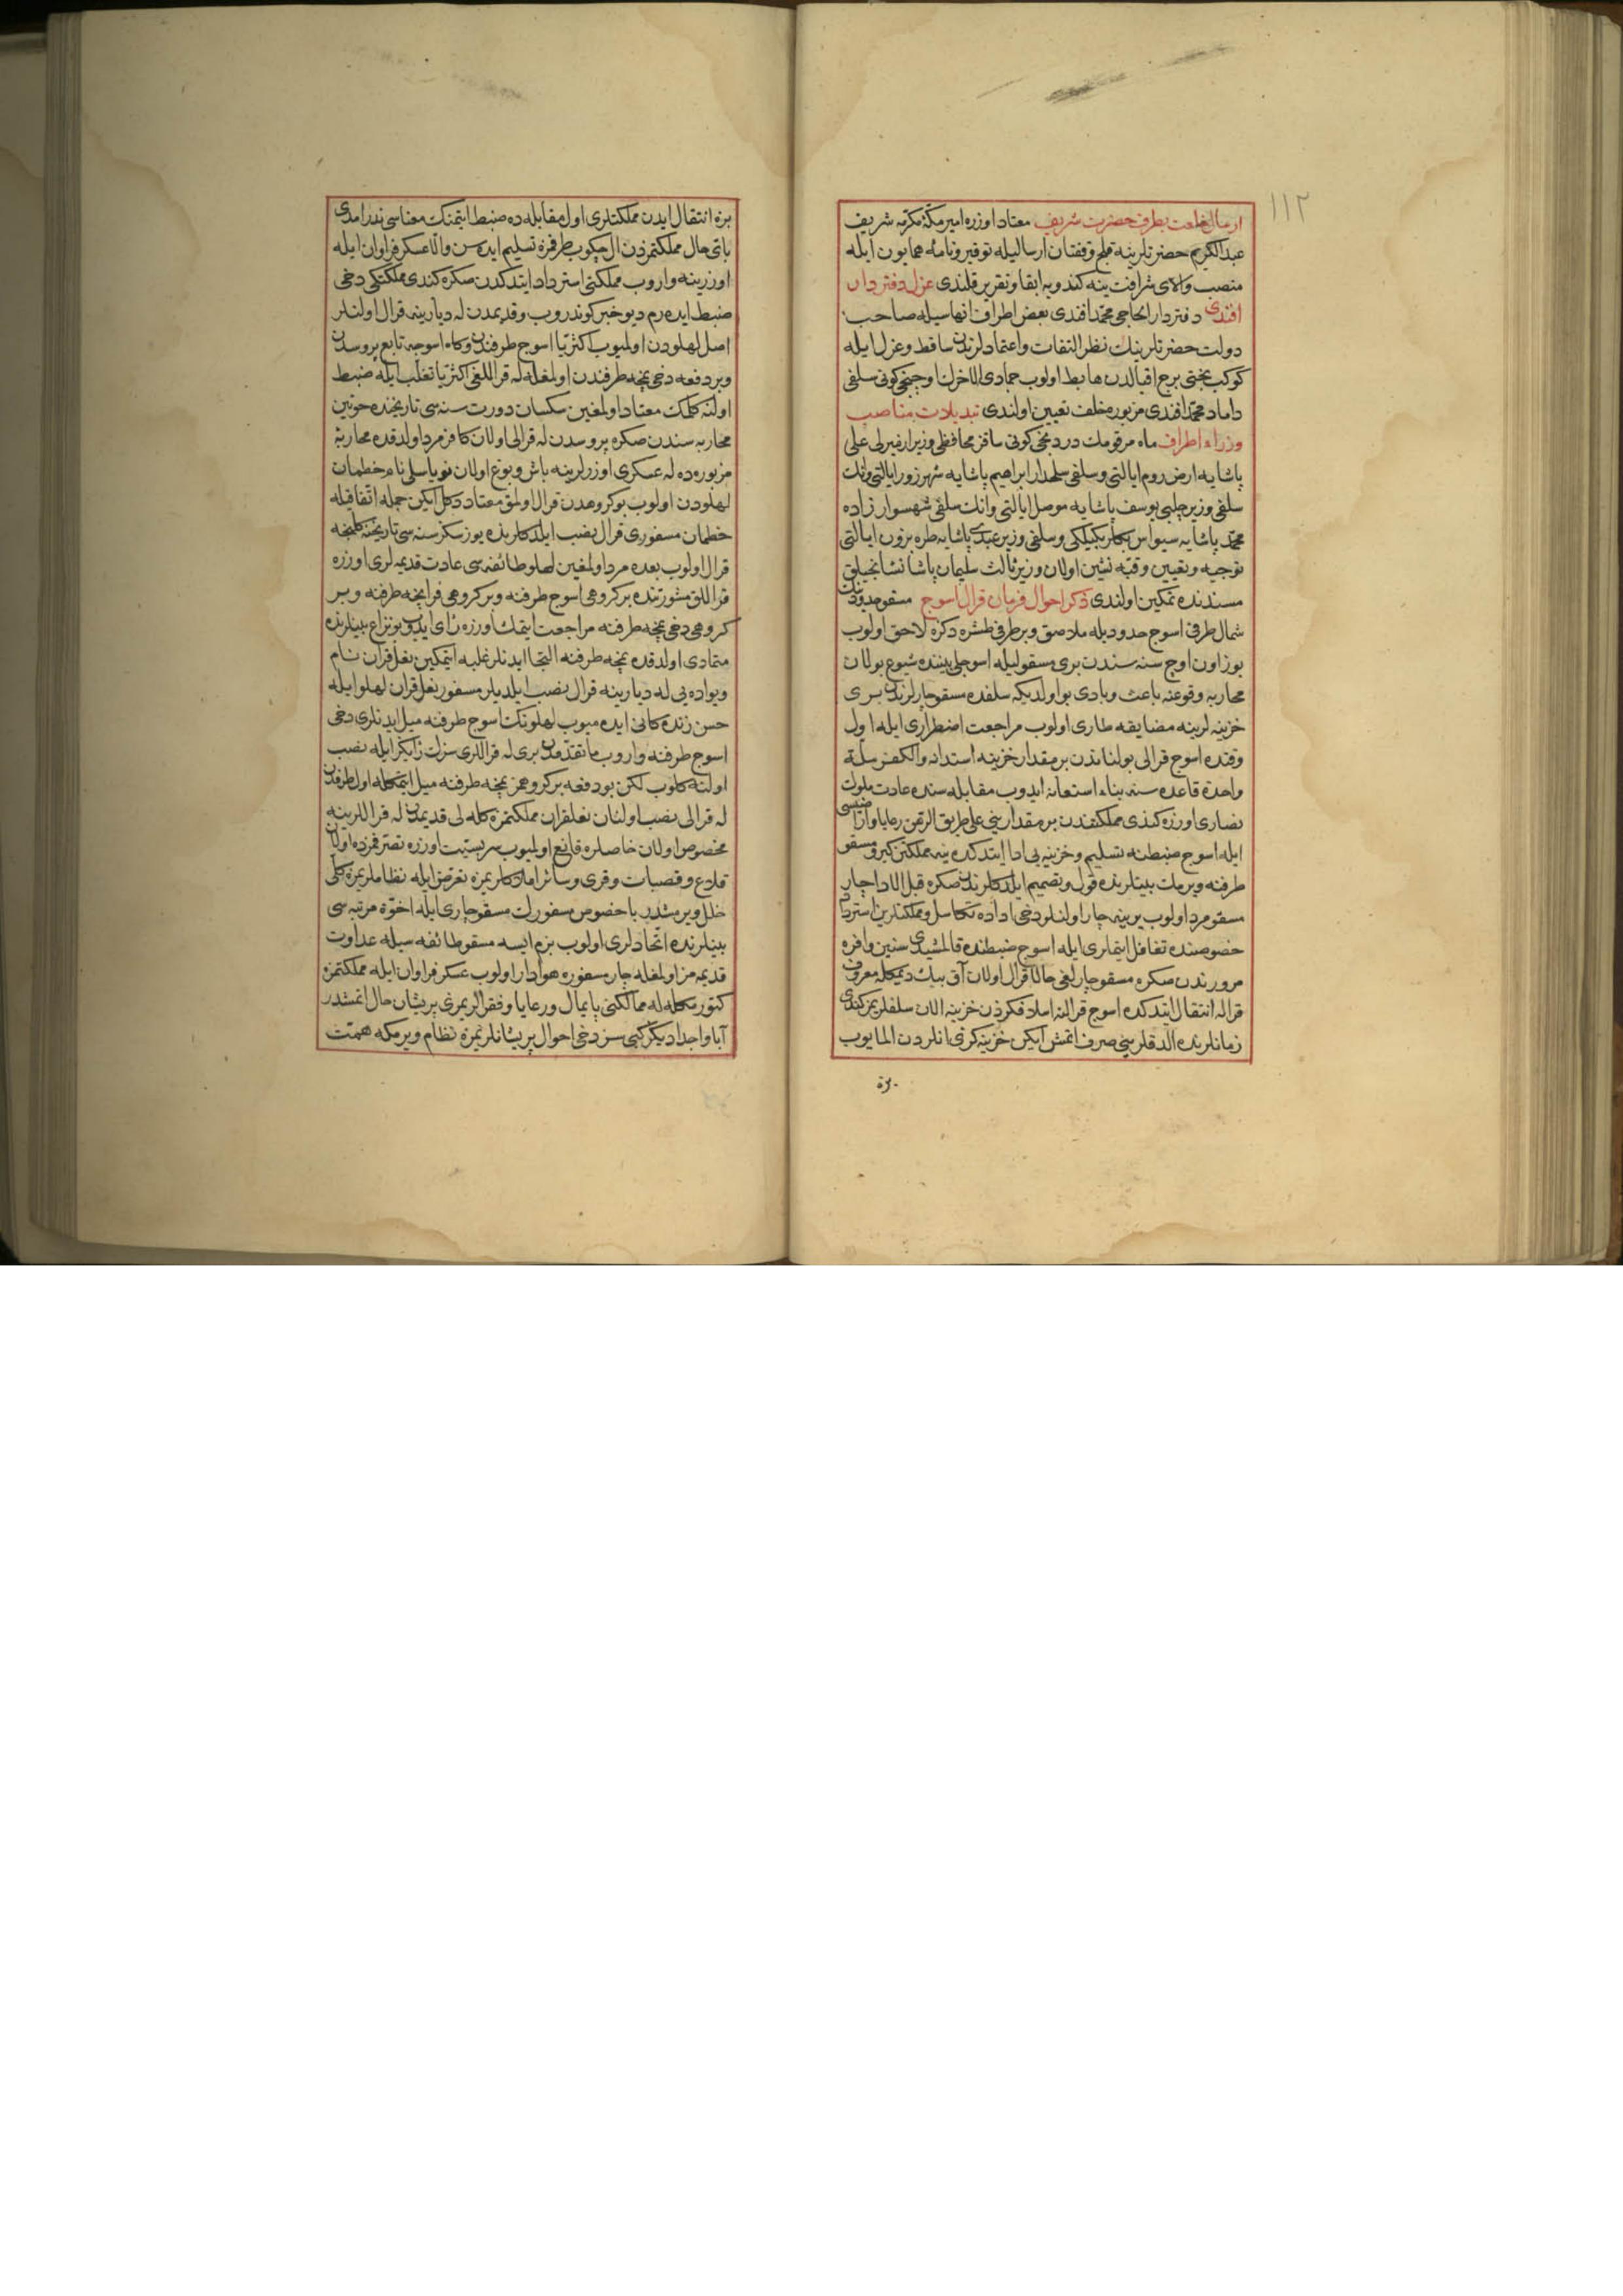 ١١٢
ارسال خلعت بطرف حضرت شريف معتاد اوزره امير مكۀ مكرمه شريف
عبدالكريم حضرتلرينه قلج وقفتان ارساليله توقير ونامۀ همايون ايله
منصب والاى شرافت ينه كندويه ابقا وتقرير قلندى عزل دفتردار
افندى دفتردار الحاجى محمد افندى بعض اطراف انهاسيله صاحب
دولت حضرتلرينك نظر التفات واعتمادلرندن ساقط وعزل ايله
كوكب بختى برج اقبالدن هابط اولوب جمادى الاخرك اوچنجى كونى سلفى
داماد محمد افندى مزبوره خلف تعيين اولندى تبديلات مناصب
وزراء اطراف ماه مرقومك دردنجى كونى ساقز محافظى وزير على
پاشايه ارض روم ايالتى وسلفى سلحدار ابراهيم پاشايه شهرزور ايالتى وانك
سلفى وزير چلبى يوسف پاشايه موصل ايالتى وانك سلفى شهسوار زاده
محمد پاشايه سيواس بكلربكيلكى وسلفى وزير عبدى پاشايه طره بزون ايالتى
توجيه وتعيين وقبه نشين اولان وزير ثالث سليمان پاشا نشانجيلق
مسندنده تمكين اولندى ذكر احوال فرمان قرال اسوج مسقو حدودينك
شمال طرفى اسوج حدوديله ملاصق وبر طرفى طشره دكزه لاحق اولوب
يوز اون اوچ سنه سندن برى مسقوليله اسوجلى بيننده شيوع بولان
محاربه وقوعنه باعث وبادى بو اولديكه سلفده مسقو چارلرندن برى
خزينه لرينه مضايقه طارى اولوب مراجعت اضطرارى ايله اول
وقتده اسوج قرالى بولناندن بر مقدار خزينه استدانه والكفر ملة
واحدة قاعده سنه بناء استعانه ايدوب مقابله سنده عادت ملوك
نصارى اوزره كندى مملكتندن بر مقدارينى على طريق الرهن رعايا واراضيسى
ايله اسوج ضبطنه تسليم وخزينه يى ادا ايتدكده ينه مملكتن كيرو مسقو
طرفنه ويرمك بينلرنده قول وتصميم ايلدكلرندن صكره قبل الادا چار
مسقو مرد اولوب يرينه چار اولنلر دخى اداده تكاسل ومملكتلرين استرداد
خصوصنده تغافل ايتملرى ايله اسوج ضبطنده قالمشيدى سنين وافره
مرورندن صكره مسقو چارلغى حالا قرال اولان آق بيك ديمكله معروف
قراله انتقال ايتدكده اسوج قرالنه اسلافكزدن خزينه الان سلفلريمز كندى
زمانلرنده الدقلرينى صرف اتمش ايكن خزينه كزى انلردن المايوب
بزه
بزه انتقال ايدن مملكتلرى اول مقابله ده ضبط ايتمنك معناسى ندر امدى
باقى حال مملكتمزدن ال چكوب طرفمزه تسليم ايده سن والا عسكر فراوان ايله
اوزرينه واروب مملكتى استرداد ايتدكدن صكره كندى مملكتكى دخى
ضبط ايده رم ديو خبر كوندروب وقديمدن له ديارينه قرال اولنلر
اصل لهلودن اولميوب اكثريا اسوج طرفندن وكاه اسوجه تابع پروسدن
وبر دفعه دخى نمچه طرفندن اولمغله له قراللغى اكثريا تغلب ايله ضبط
اولنه كلمك معتاد اولمغين سكسان دورت سنه سى تاريخنده خوتين
محاربه سندن صكره پروسدن له قرالى اولان كافر مرد اولدقده محاربۀ
مزبوره ده له عسكرى اوزرلرينه باش وبوغ اولان نام خطمان
لهلودن اولوب بو كروهدن قرال اولمق معتاد دكل ايكن جمله اتفاقيله
خطمان مسفورى قرال نصب ايلدكلرنده يوز سكز سنه سى تاريخنه كلنجه
قرال اولوب بعده مرد اولمغين لهلو طائفه سى عادت قديمه لرى اوزره
قراللق مشورتنده بر كروهى اسوج طرفنه وبر كروهى فرانچه طرفنه وبر
كروهى دخى نمچه طرفنه مراجعت ايتمك اوزره راى ايدوب بو نزاع بينلرنده
متمادى اولدقده نمچه طرفنه التجا ايدنلر غلبه ايتمكين نعل قران نام
ويواده يى له ديارينه قرال نصب ايلديلر مسفور نعل قران لهلو ايله
حسن زندكانى ايده ميوب لهلونك اسوج طرفنه ميل ايدنلرى دخى
اسوج طرفنه واروب ما تقدمدن برى له قراللرى سزك رايكز ايله نصب
اولنه كلوب لكن بو دفعه بر كروهمز نمچه طرفنه ميل ايتمكله اول طرفدن
له قرالى نصب اولنان نعلقران مملكتمزه كله لى قديمدن له قراللرينه
مخصوص اولان خاصلره قانع اولميوب سربستيت اوزره تصرفمزده اولان
قلاع وقصبات وقرى وسائر املاكلريمزه تعرض ايله نظاملريمزه كلى
خلل ويرمشدر با خصوص مسفورك مسقو چارى ايله اخوة مرتبه سى
بينلرنده اتحادلرى اولوب بزم ايسه مسقو طائفه سيله عداوت
قديمه مز اولمغله چار مسفوره هوادار اولوب عسكر فراوان ايله مملكتمزه
كتورمكله له ممالكنى پايمال ورعايا وفقرالريمزى پريشان حال اتمشدر
آبا واجداديكز كبى سز دخى احوال پريشانلريمزه نظام ويرمكه همت